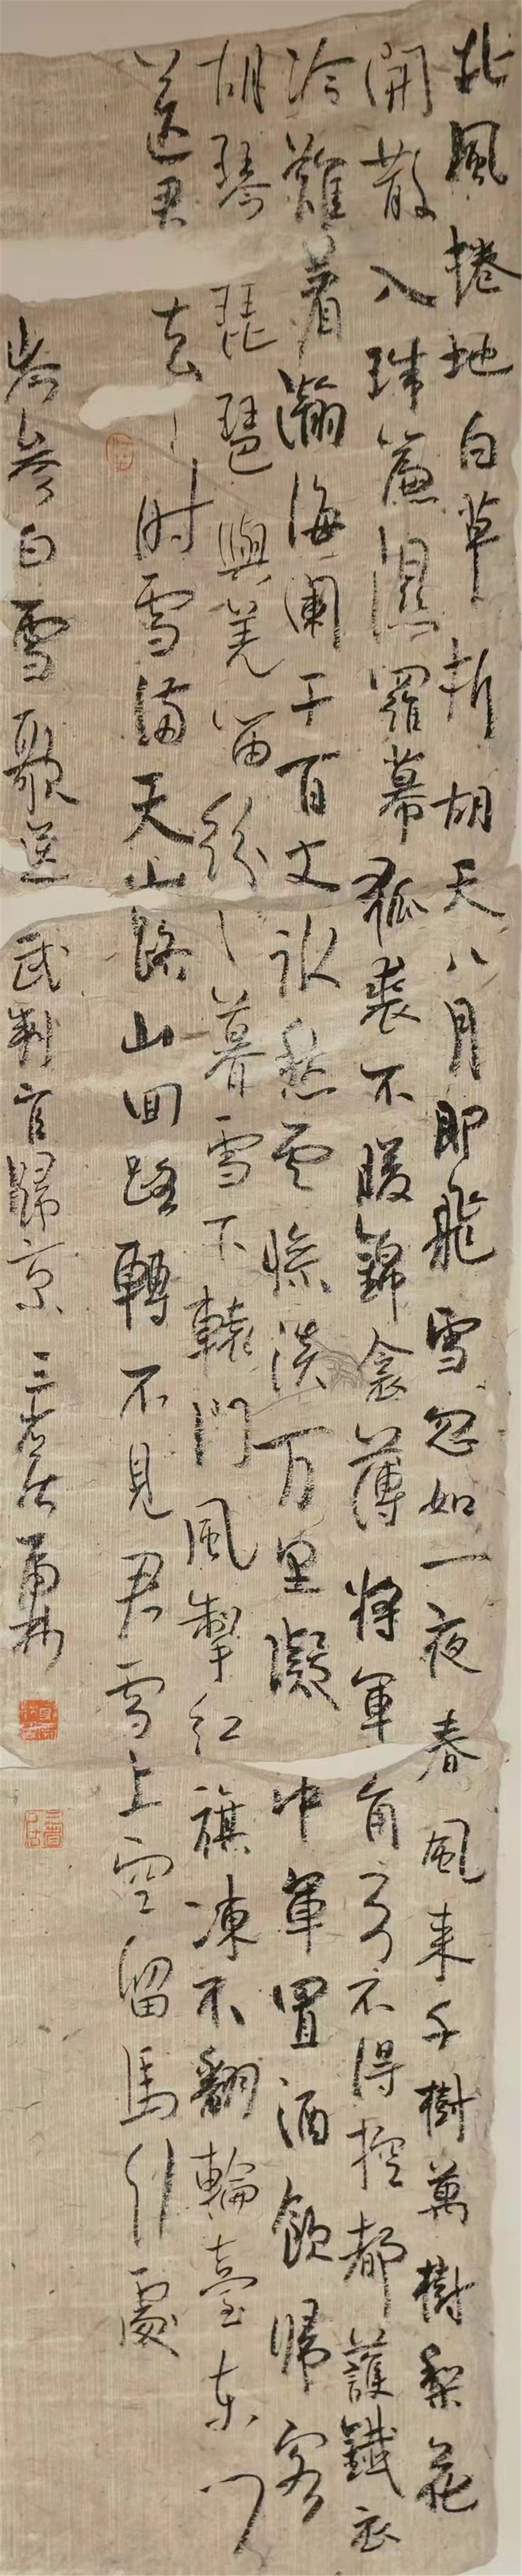 北風捲地白草折胡天八月即飛雪忽如一夜春風来千樹萬樹梨花
開散入珠簾濕羅幕狐裘不暖錦衾薄將軍角弓不得控都護鐵衣
冷難着瀚海闌干百丈冰愁雲慘淡万里凝中軍置酒飲歸客
胡琴琵琶與羌笛紛〻暮雪下轅門風掣紅旗凍不翻輪臺東門
送君去〻時雪滿天山路山回路轉不見君雪上空留馬行處
岑參白雪歌送武判官歸京